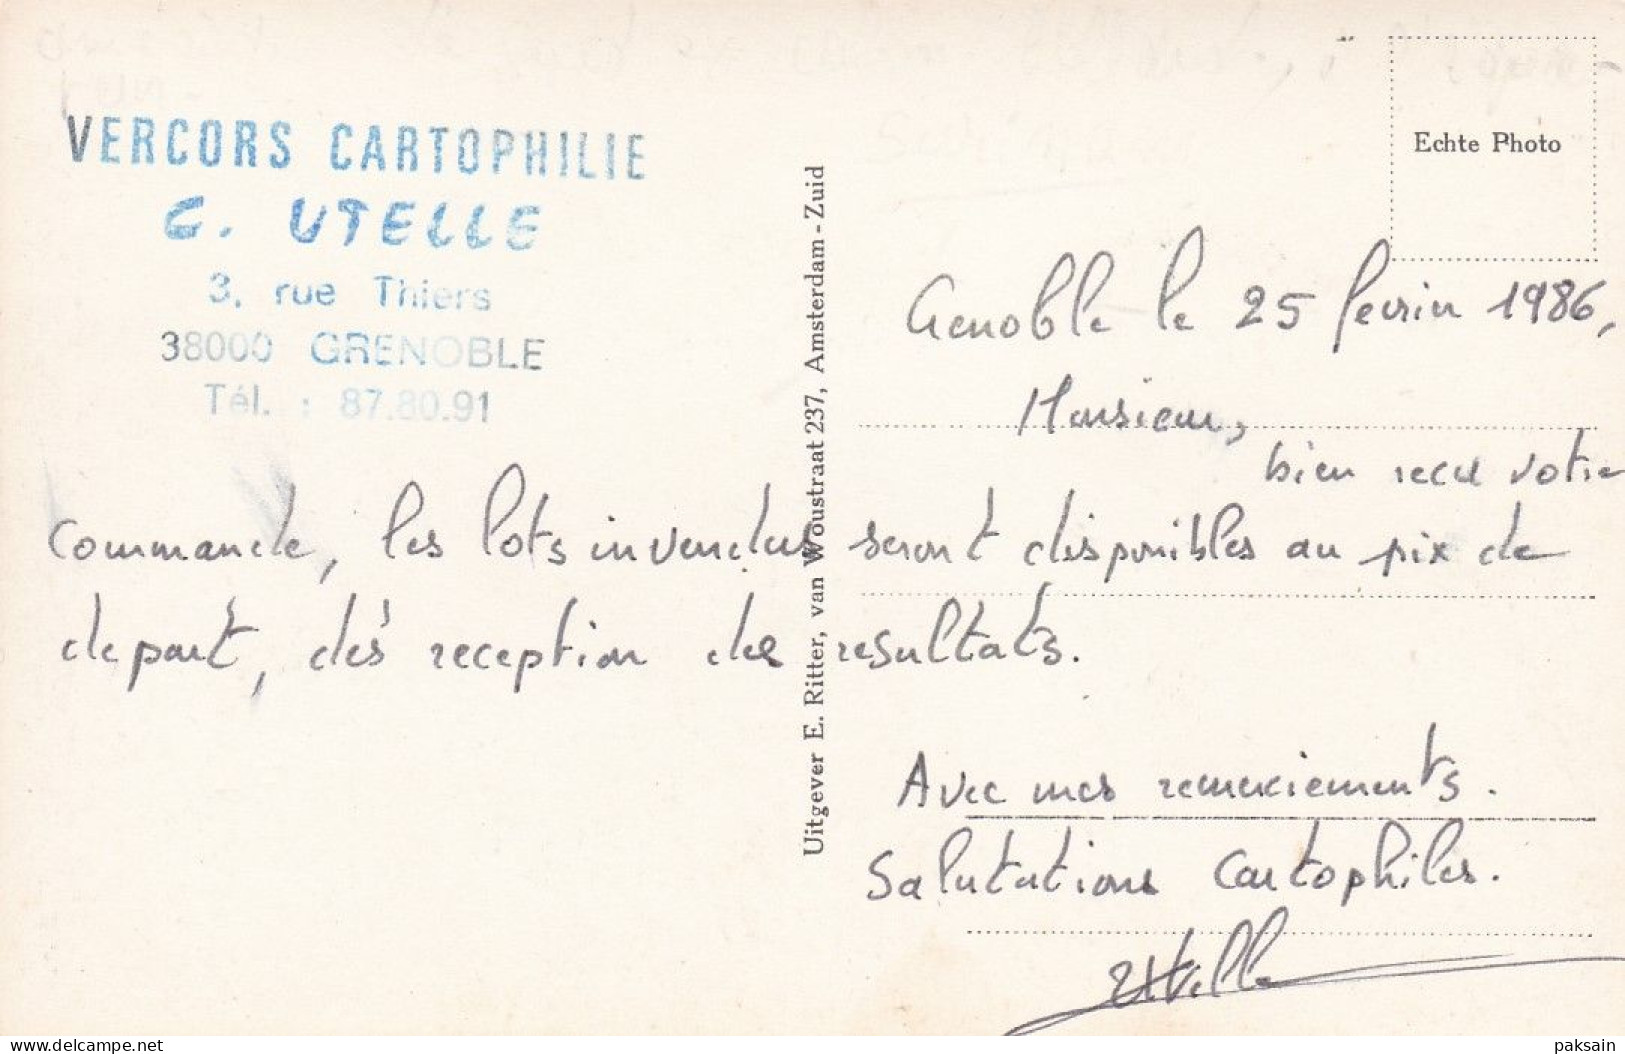 VERCORS CARTOPHILIE
G. UTELLE
3, rue Thiers
38000 GRENOBLE
Tél. : 87.80.91
Echte Photo
Uitgever E. Ritter, van Woustraat 237, Amsterdam-Zuid
Grenoble le 25 fevrier 1986,
Monsieur,
bien recu votre
commande, les lots invendus seront disponibles au pix de
depart, dès reception des resultats.
Avec mes remerciements.
Salutations Cartophiles.
Utelle
www.delcampe.net
paksain